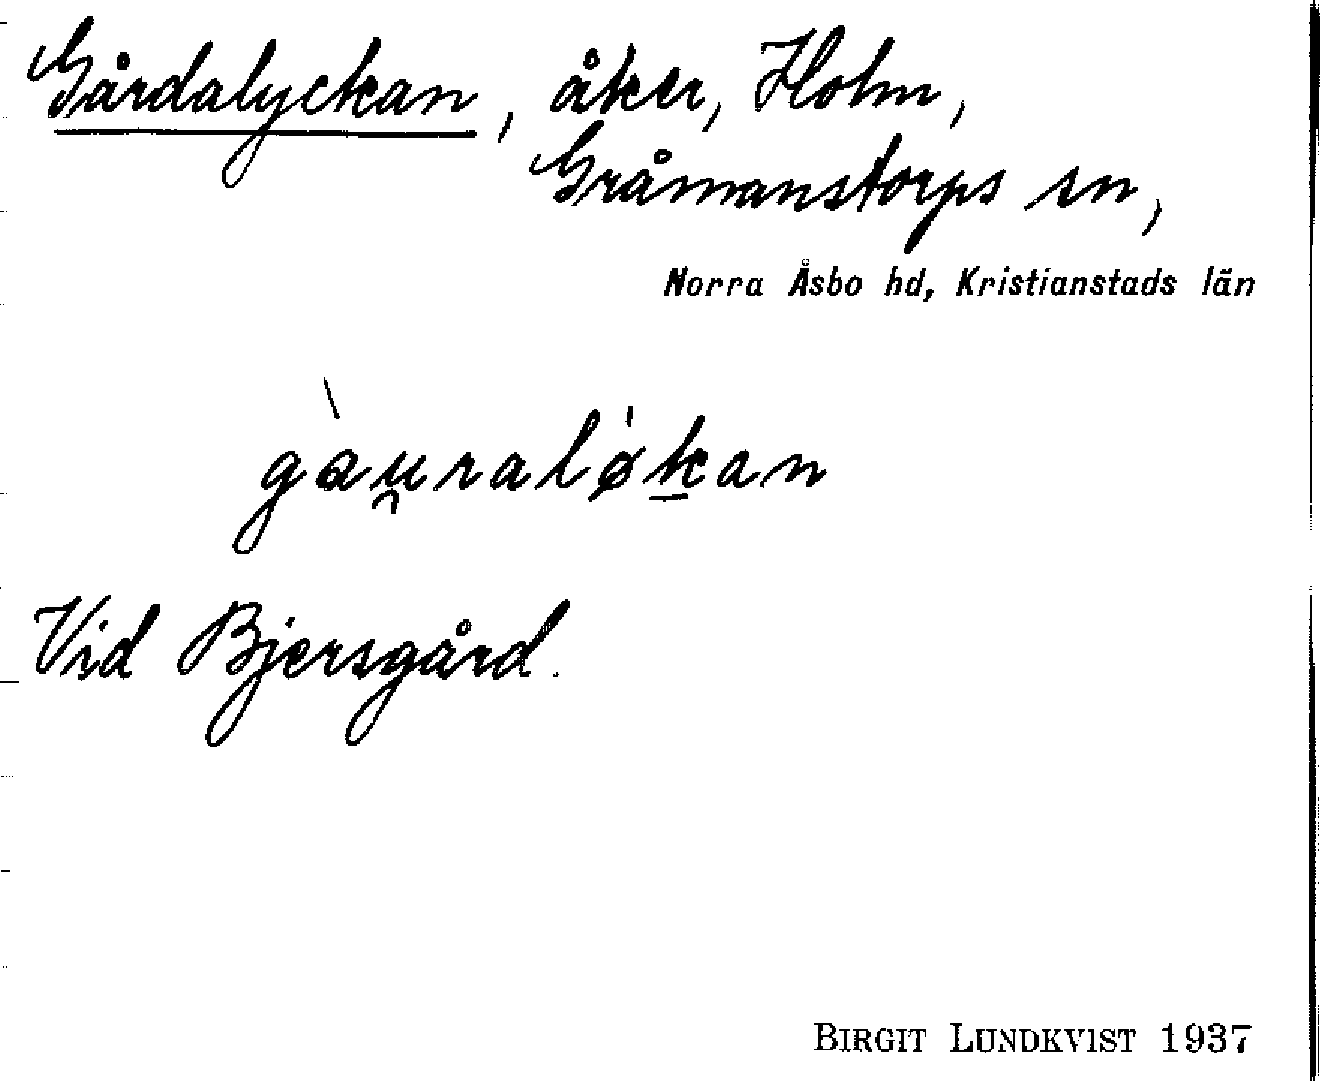 Gårdalyckan, åker, Holm,
Gråmanstorps sn,
Norra Åsbo hd, Kristianstads län
gàu̯ralø̍k̠an
Vid Bjersgård.
BIRGIT LUNDKVIST 1937